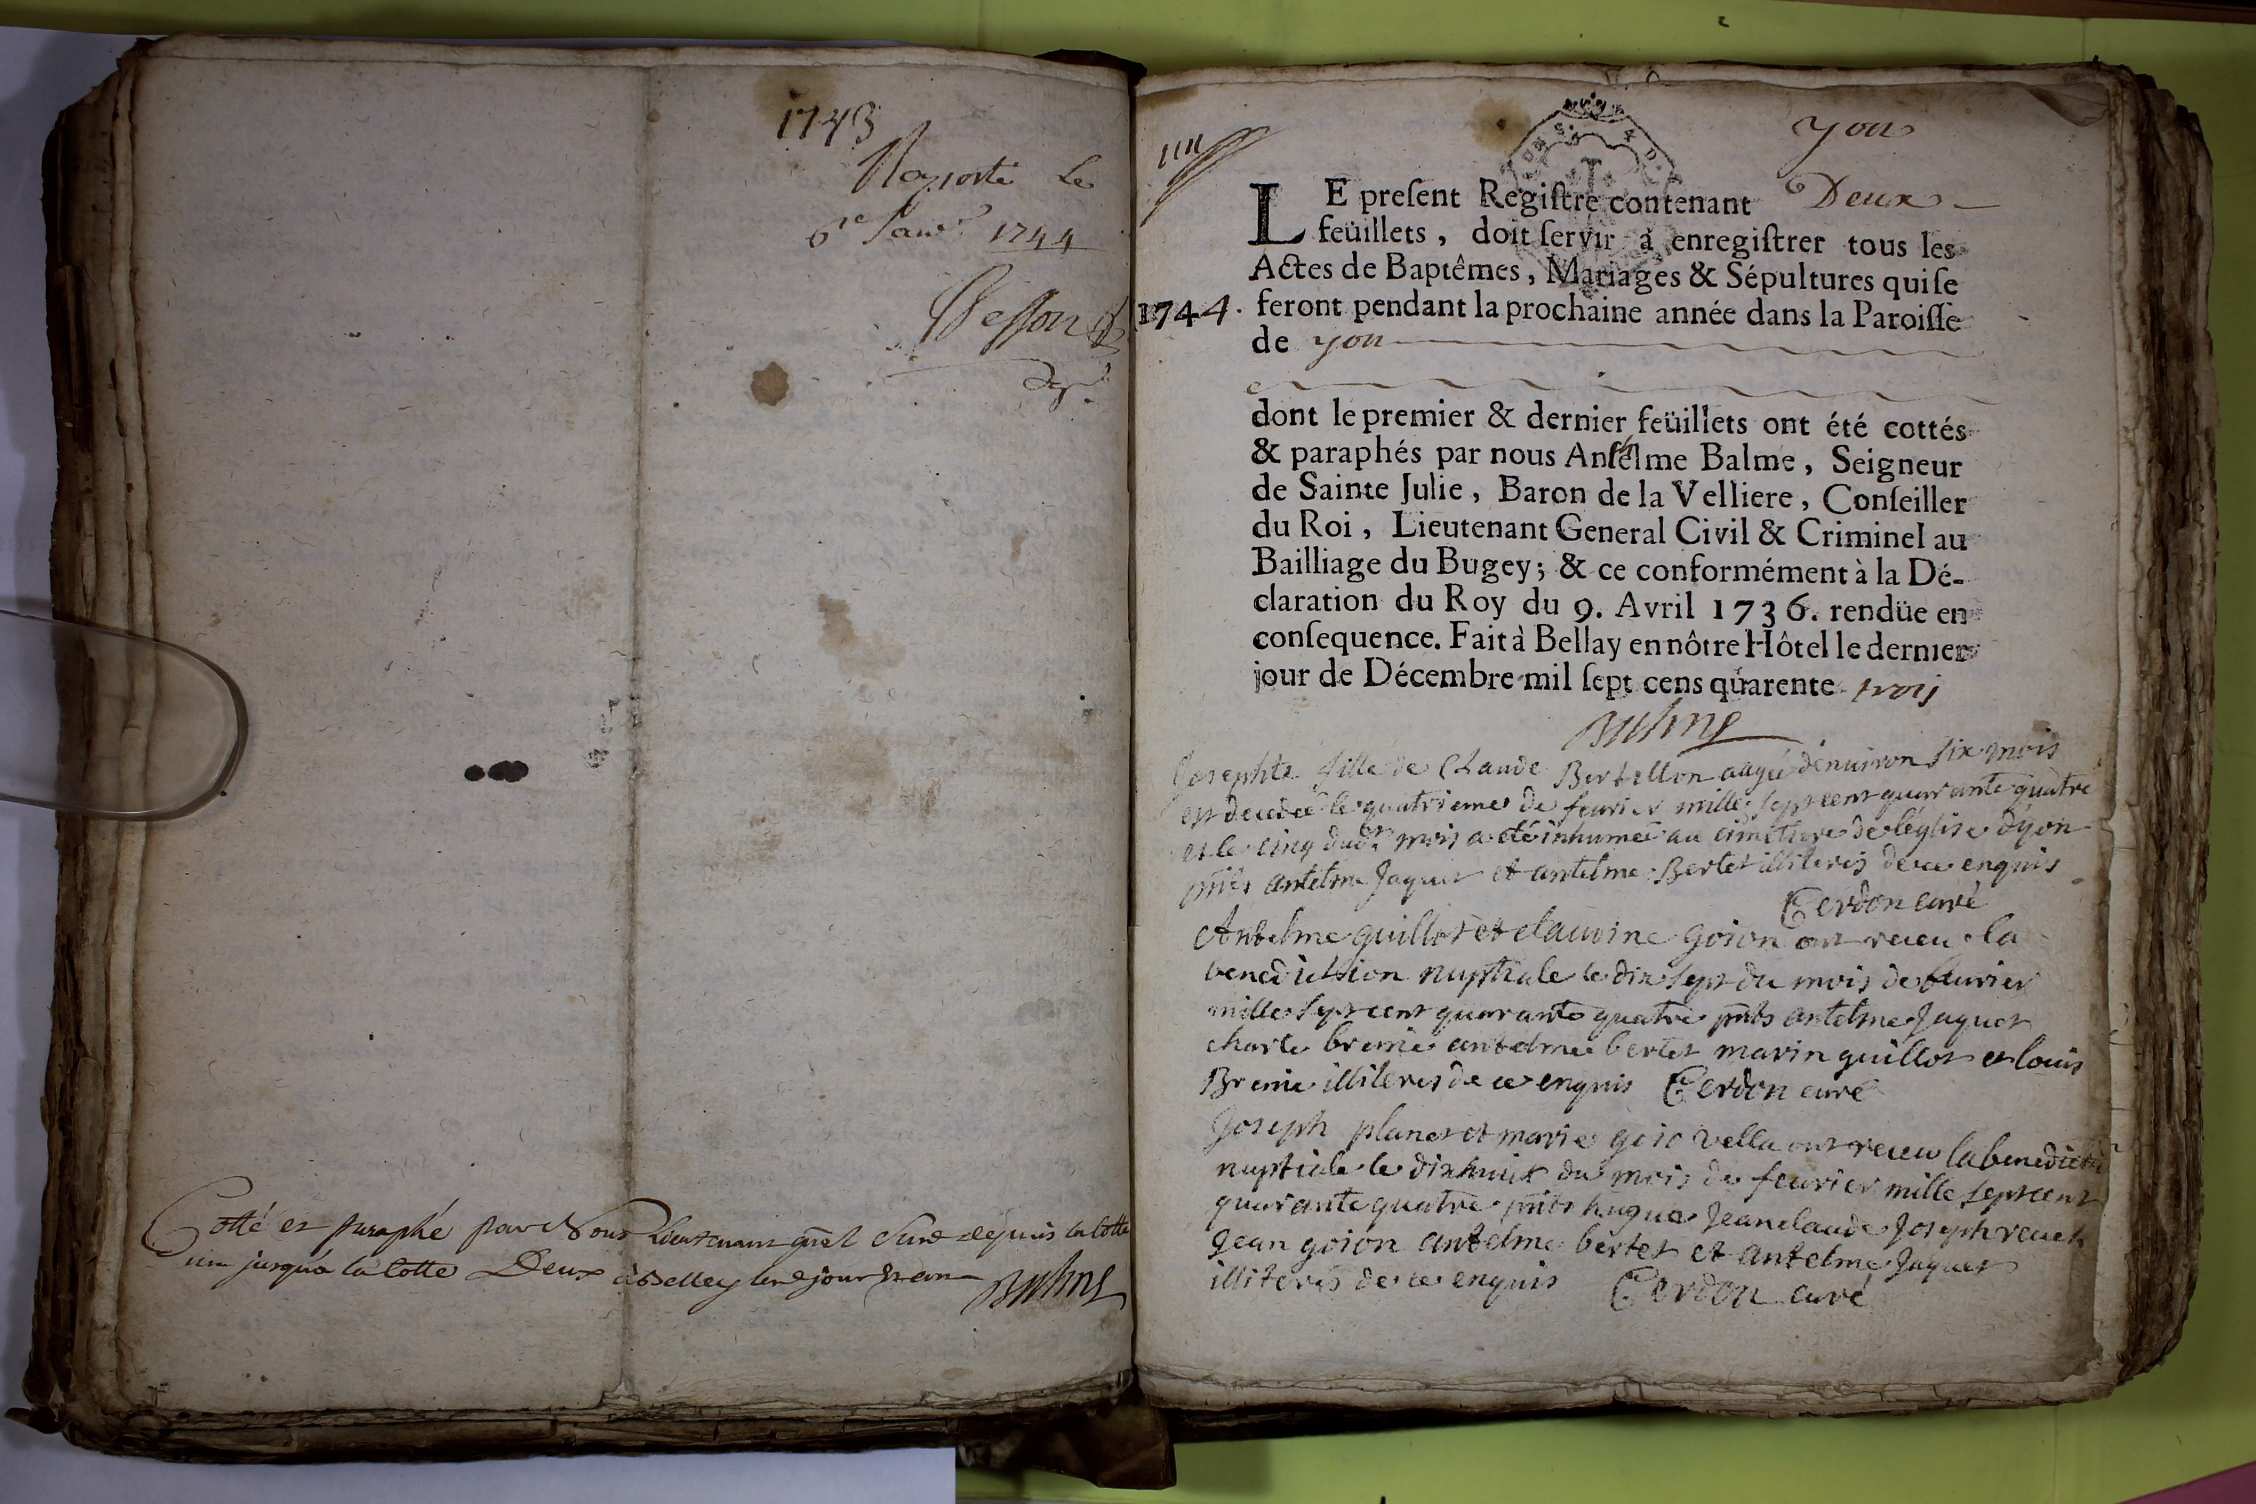 1743
Raporté Le
6e Janv. 1744
Besson
Cotté et paraphé par Nous Lieutenant gñel Civil depuis la Cotte
un jusqu'a la Cotte Deux a Belley led jour et an
Balme
yon
LE preſent Regiſtre contenant Deux
feüillets, doit ſervir à enregiſtrer tous les
Actes de Baptêmes, Mariages & Sépultures qui ſe
1744. feront pendant la prochaine année dans la Paroiſſe
de yon
dont le premier & dernier feüillets ont été cottés
& paraphés par nous Anthelme Balme, Seigneur
de Sainte Julie, Baron de la Velliere, Conſeiller
du Roi, Lieutenant General Civil & Criminel au
Bailliage du Bugey; & ce conformément à la Dé-
claration du Roy du 9. Avril 1736. rendüe en
conſequence. Fait à Bellay en nôtre Hôtel le dernier
jour de Décembre mil ſept cens quarente trois
Balme
Josephte fille de Claude Bertillon aagée denuiron six mois
est decedeé le quatrieme de feurier mille sept cent quarante quatre
et le cinq dudt mois a eté inhumeé au cimetiere de léglise dyon
pñts antelme Jaquet et antelme Bertet illiteres de ce enquis
Cerdon curé
Antelme guillot et claudine goion ont receu la
benediction nuptiale le dix sept du mois de feurier
mille sept cent quarante quatre pñts antelme Jaquet
charle breme antelme bertet marin guillot et louis
Breme illiteres de ce enquis Cerdon curé
Joseph planet et marie goio vella ont receu la benedicti
nuptiale le dixhuit du mois de feurier mille sept cent
quarante quatre pñts hugue Jeanclaude Joseph reuet
Jean goion antelme bertet et antelme Jaquet
illiterés de ce enquis Cerdon curé